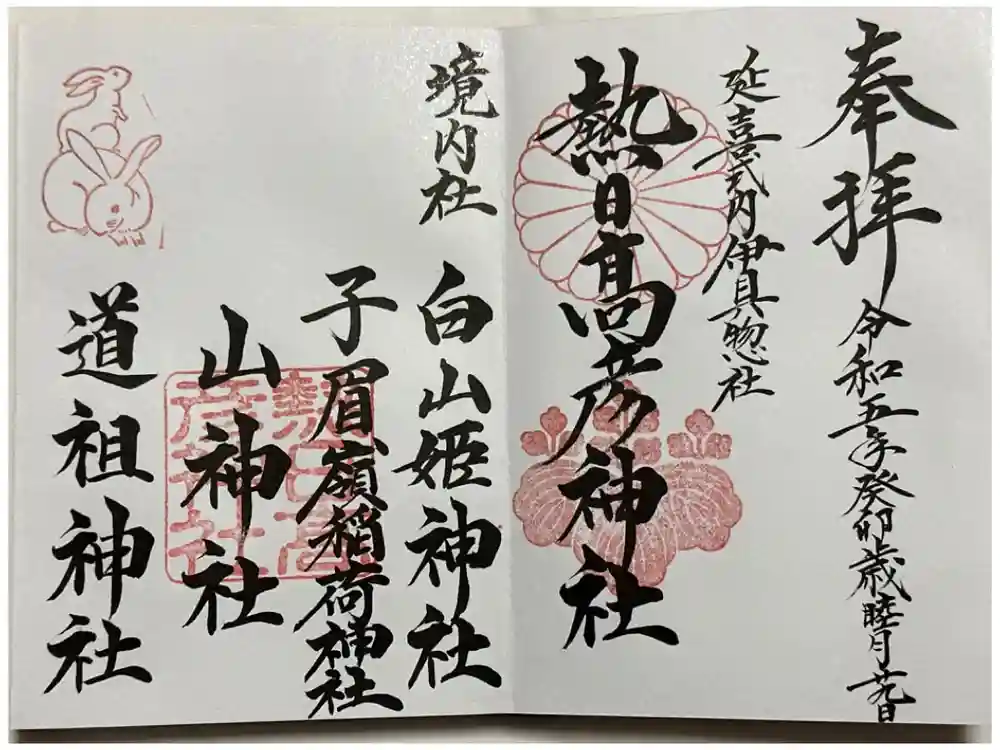 奉拝
令和五年癸卯歳睦月廿九日
延喜式内伊具惣社
熱日高彦神社
境内社
白山姫神社
子眉嶺稲荷神社
山神社
道祖神社
熱日高
彦神社